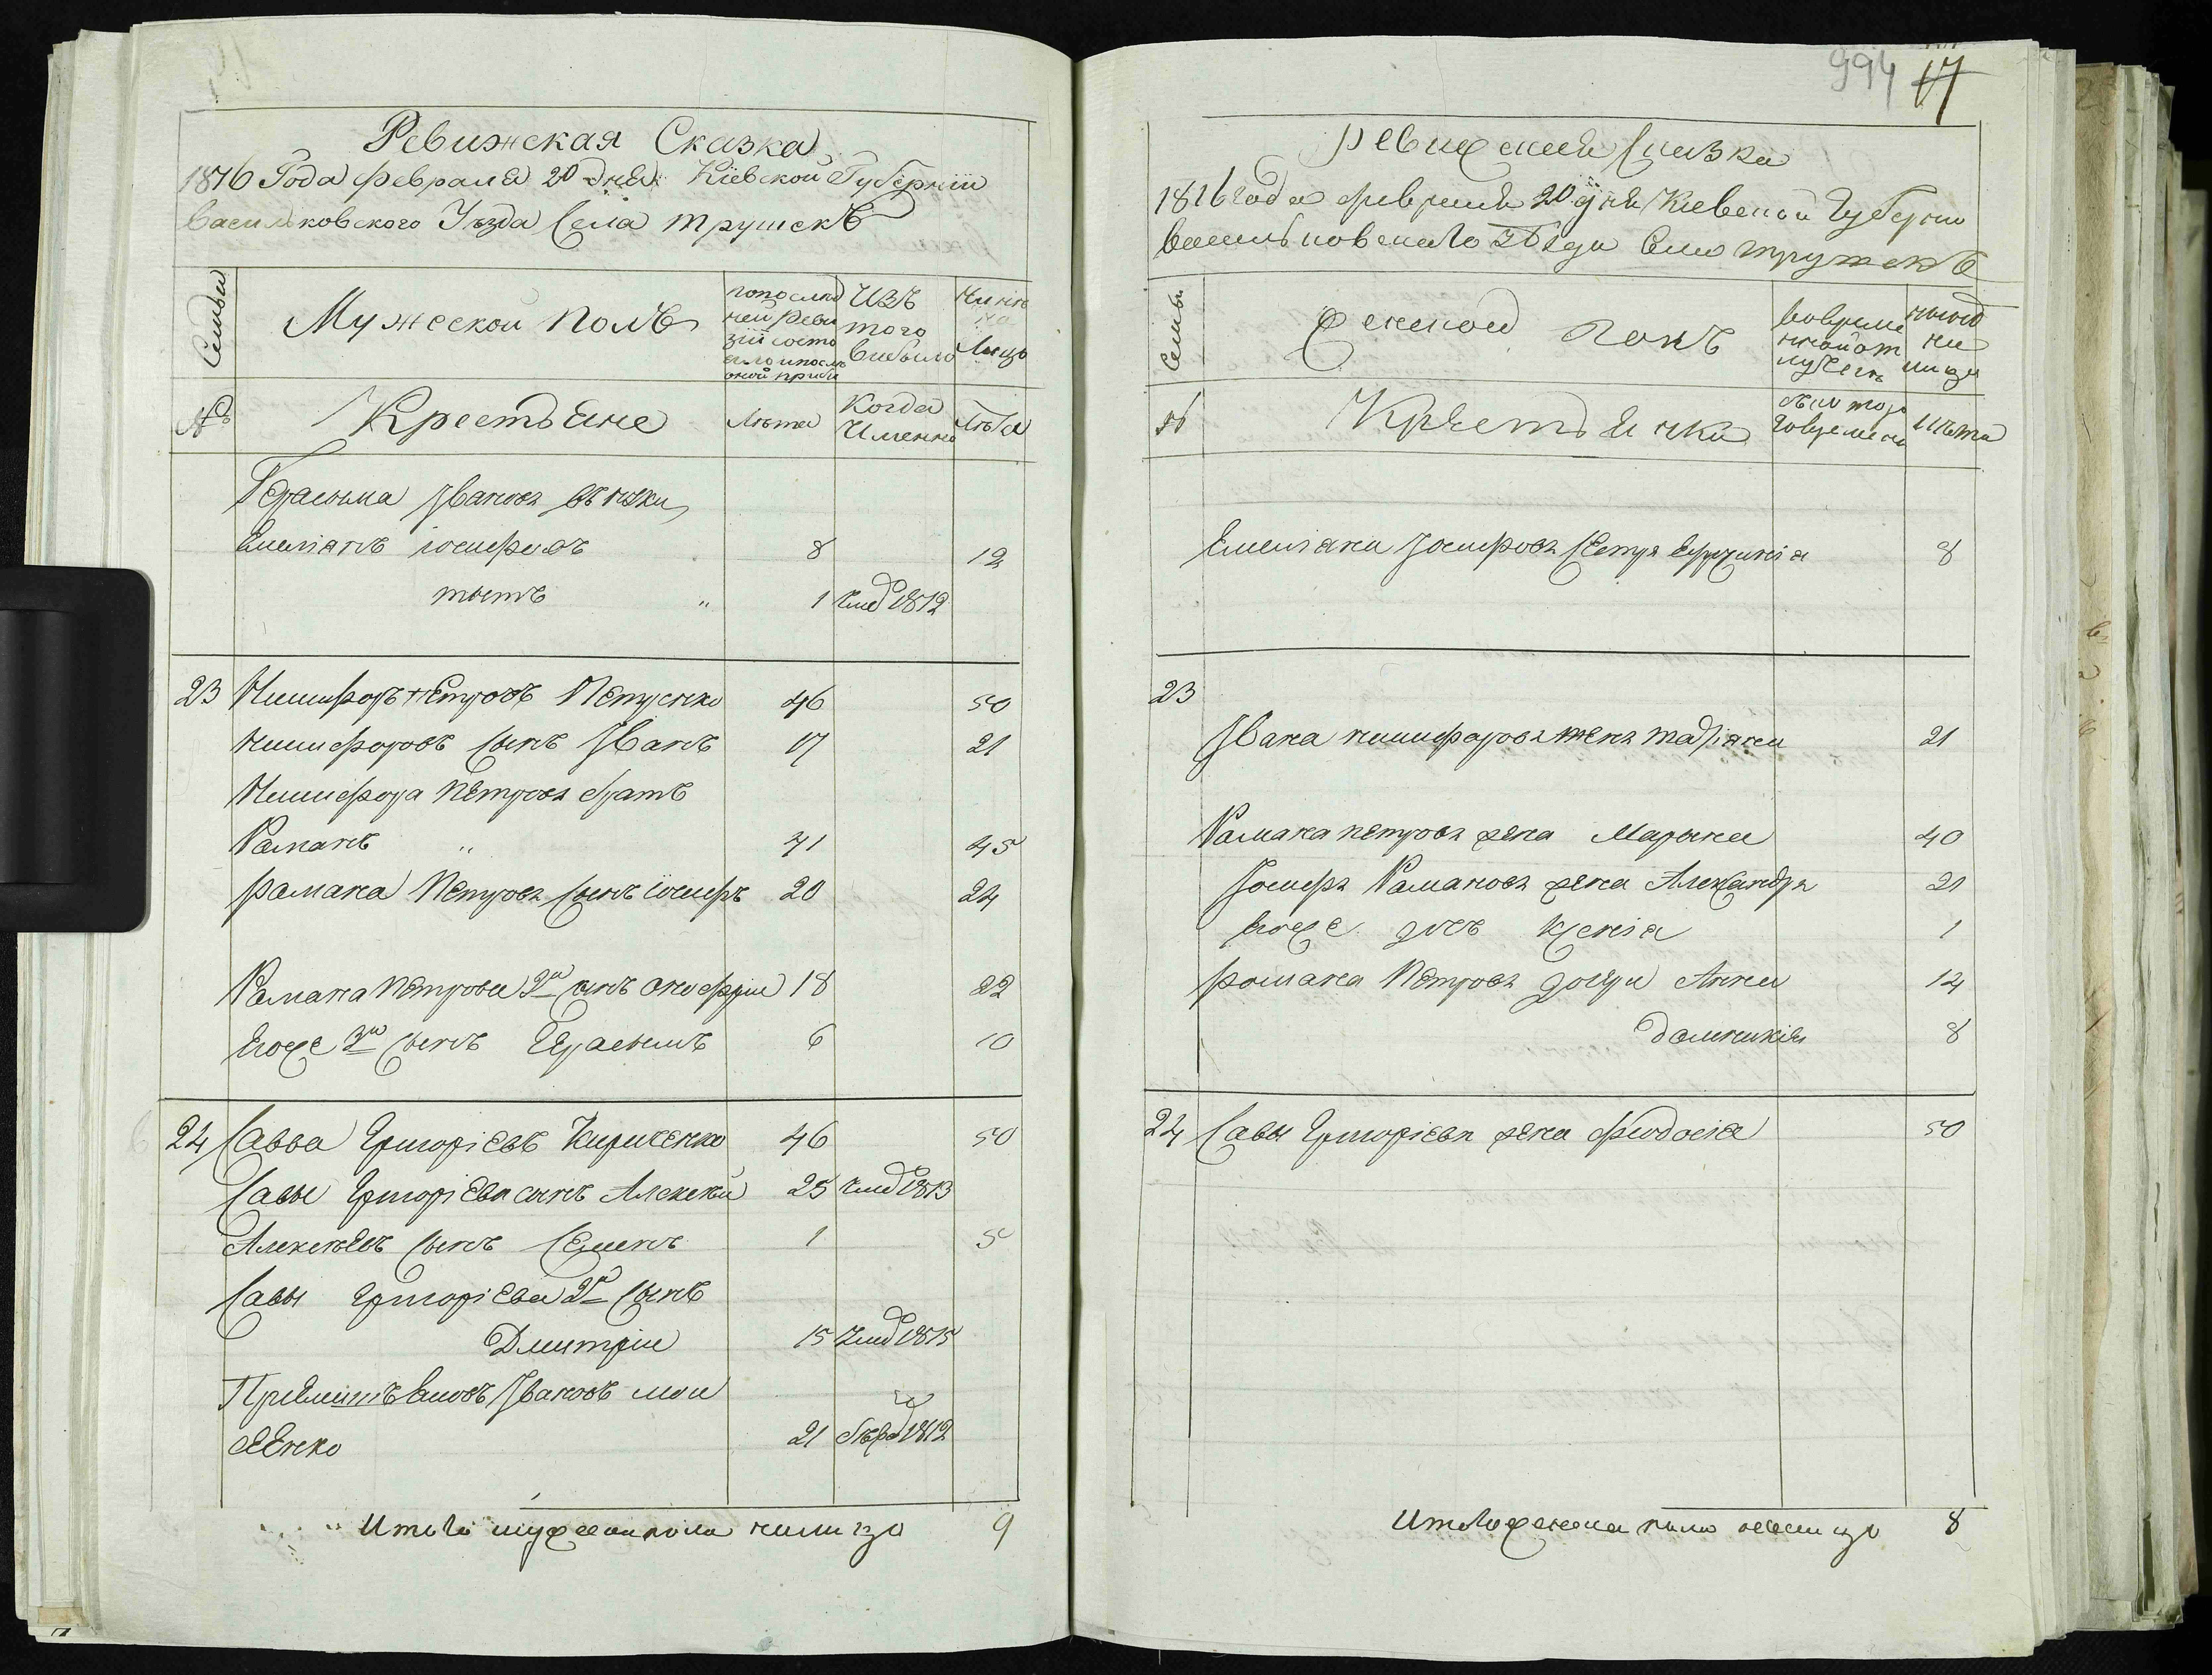 Ревижская Сказка
1816 Года февраля 20 дня Кіевской Губерніи
Васильковского Уезда Села трушекъ
Семьи
Мужеской полъ
попослед
ней реви
зіи состо
яло и после
оной прибы
Изъ
того
выбыло
Ныне
на
лицо
№
Крестьяне
Лета
Когда
Именно
Лета
Герасыма Іванова внуки
Емелянъ іосифовъ 8 12
тытъ " 1 умер 1812
23 Никифоръ Петровъ Петренко 46 50
Никифоровъ сынъ Іванъ 17 21
Никифора Петрова братъ
Раманъ " 41 45
рамана Петрова сынъ іосифъ 20 24
Рамана Петрова 2й сынъ Онофріи 18 22
Егоже 3й сынъ Герасымъ 6 10
24 Савва Григоріевъ Кириченко 46 50
Савы Григоріева сынъ Алексей 25 умер 1813
Алексеевъ сынъ Семенъ 1 5
Савы Григоріева 2й сынъ
Дмитріи 15 умер 1815
Пріемишъ Івановъ мои
сеенко 21 1812
Итого мужеска пола налицо 9
994 17
ревижская сказка
1816 года февраля 20 дня Кіевской Губерніи
васильковскаго уезда села трушекъ
Семьи
Женской полъ
вовреме
нной от
лучке
ныне
на
лицо
№
Крестьянки
съ котораго
времени
Лета
Емеляна Іосифова сестра Ефросинія 8
23
Івана никифорова жена маріяна 21
Рамана петрова жена Марына 40
Іосифа Раманова жена Александра 21
Егоже дочь Ксенія 1
романа Петрова дочери Анна 14
Домникія 8
24 Савы Григоріева жена Феодосія 50
Итого женска пола налицо 8